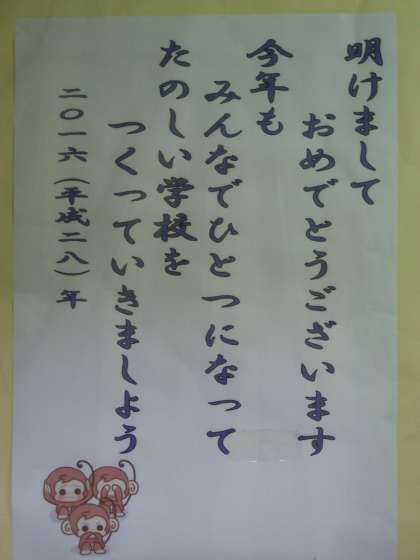 明けまして
おめでとうございます
今年も
みんなでひとつになって
たのしい学校を
つくっていきましょう
二〇一六（平成二八）年